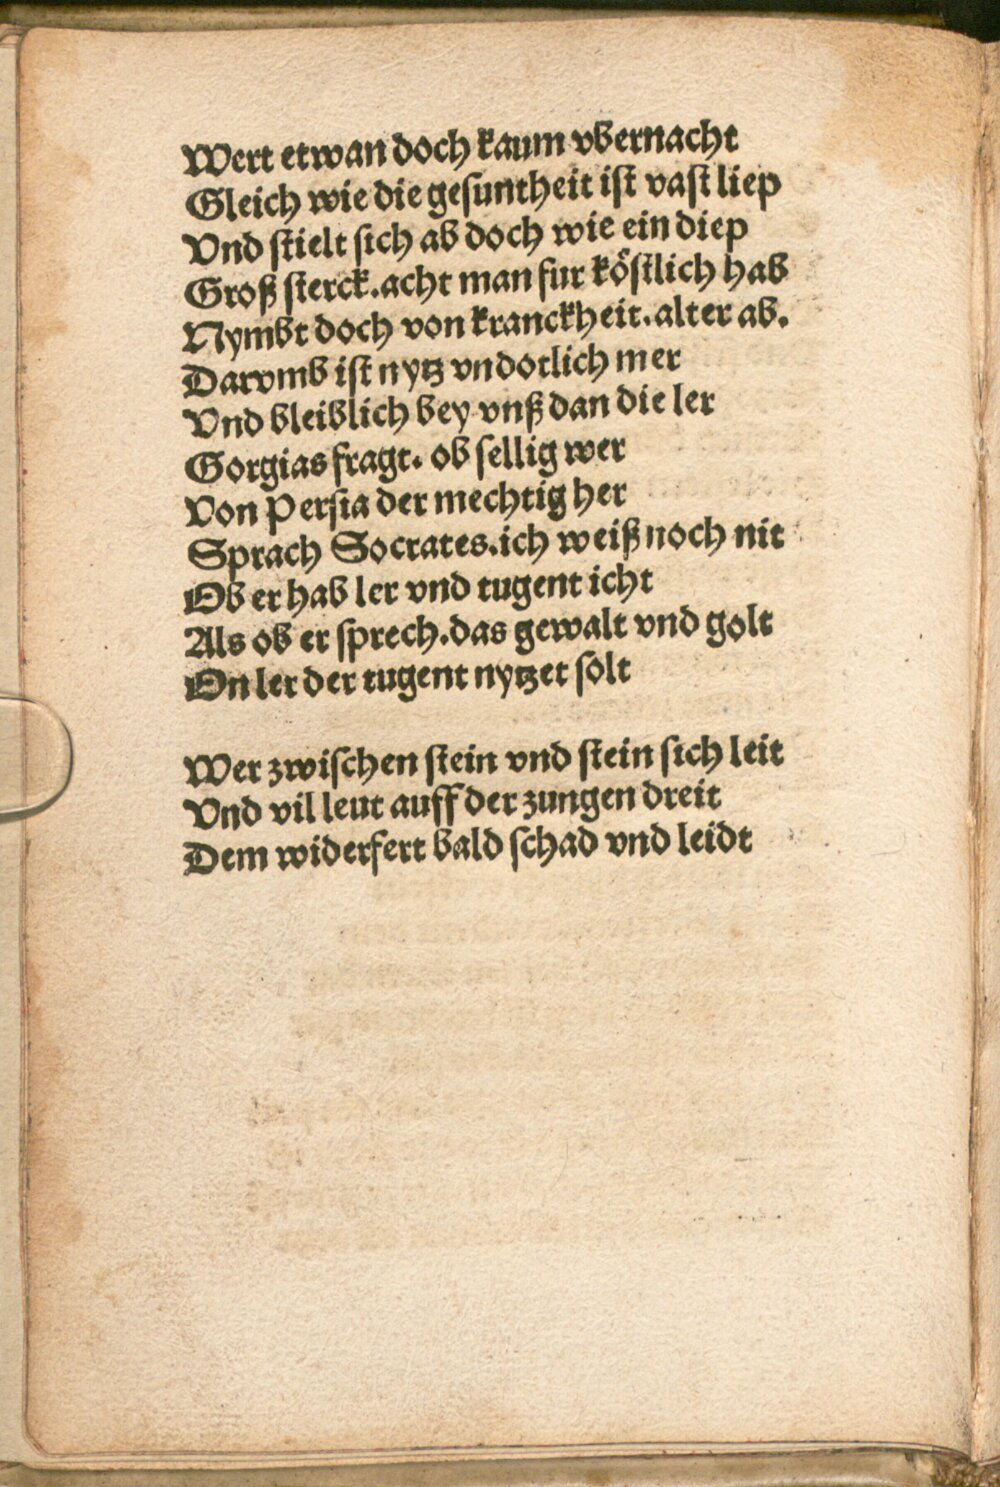 Wert etwan doch kaum vbernacht
Gleich wie die gesuntheit ist vast liep
Vnd stielt sich ab doch wie ein diep
Groß sterck. acht man fur koͤstlich hab
Nymbt doch von kranckheit. alter ab.
Darvmb ist nytz vndotlich mer
Vnd bleiblich bey vnß dan die ler
Gorgias fragt. ob sellig wer
Von Persia der mechtig her
Sprach Socrates. ich weiß noch nit
Ob er hab ler vnd tugent icht
Als ob er sprech. das gewalt vnd golt
On ler der tugent nytzet solt

Wer zwischen stein vnd stein sich leit
Vnd vil leut auff der zungen dreit
Dem widerfert bald schad vnd leidt